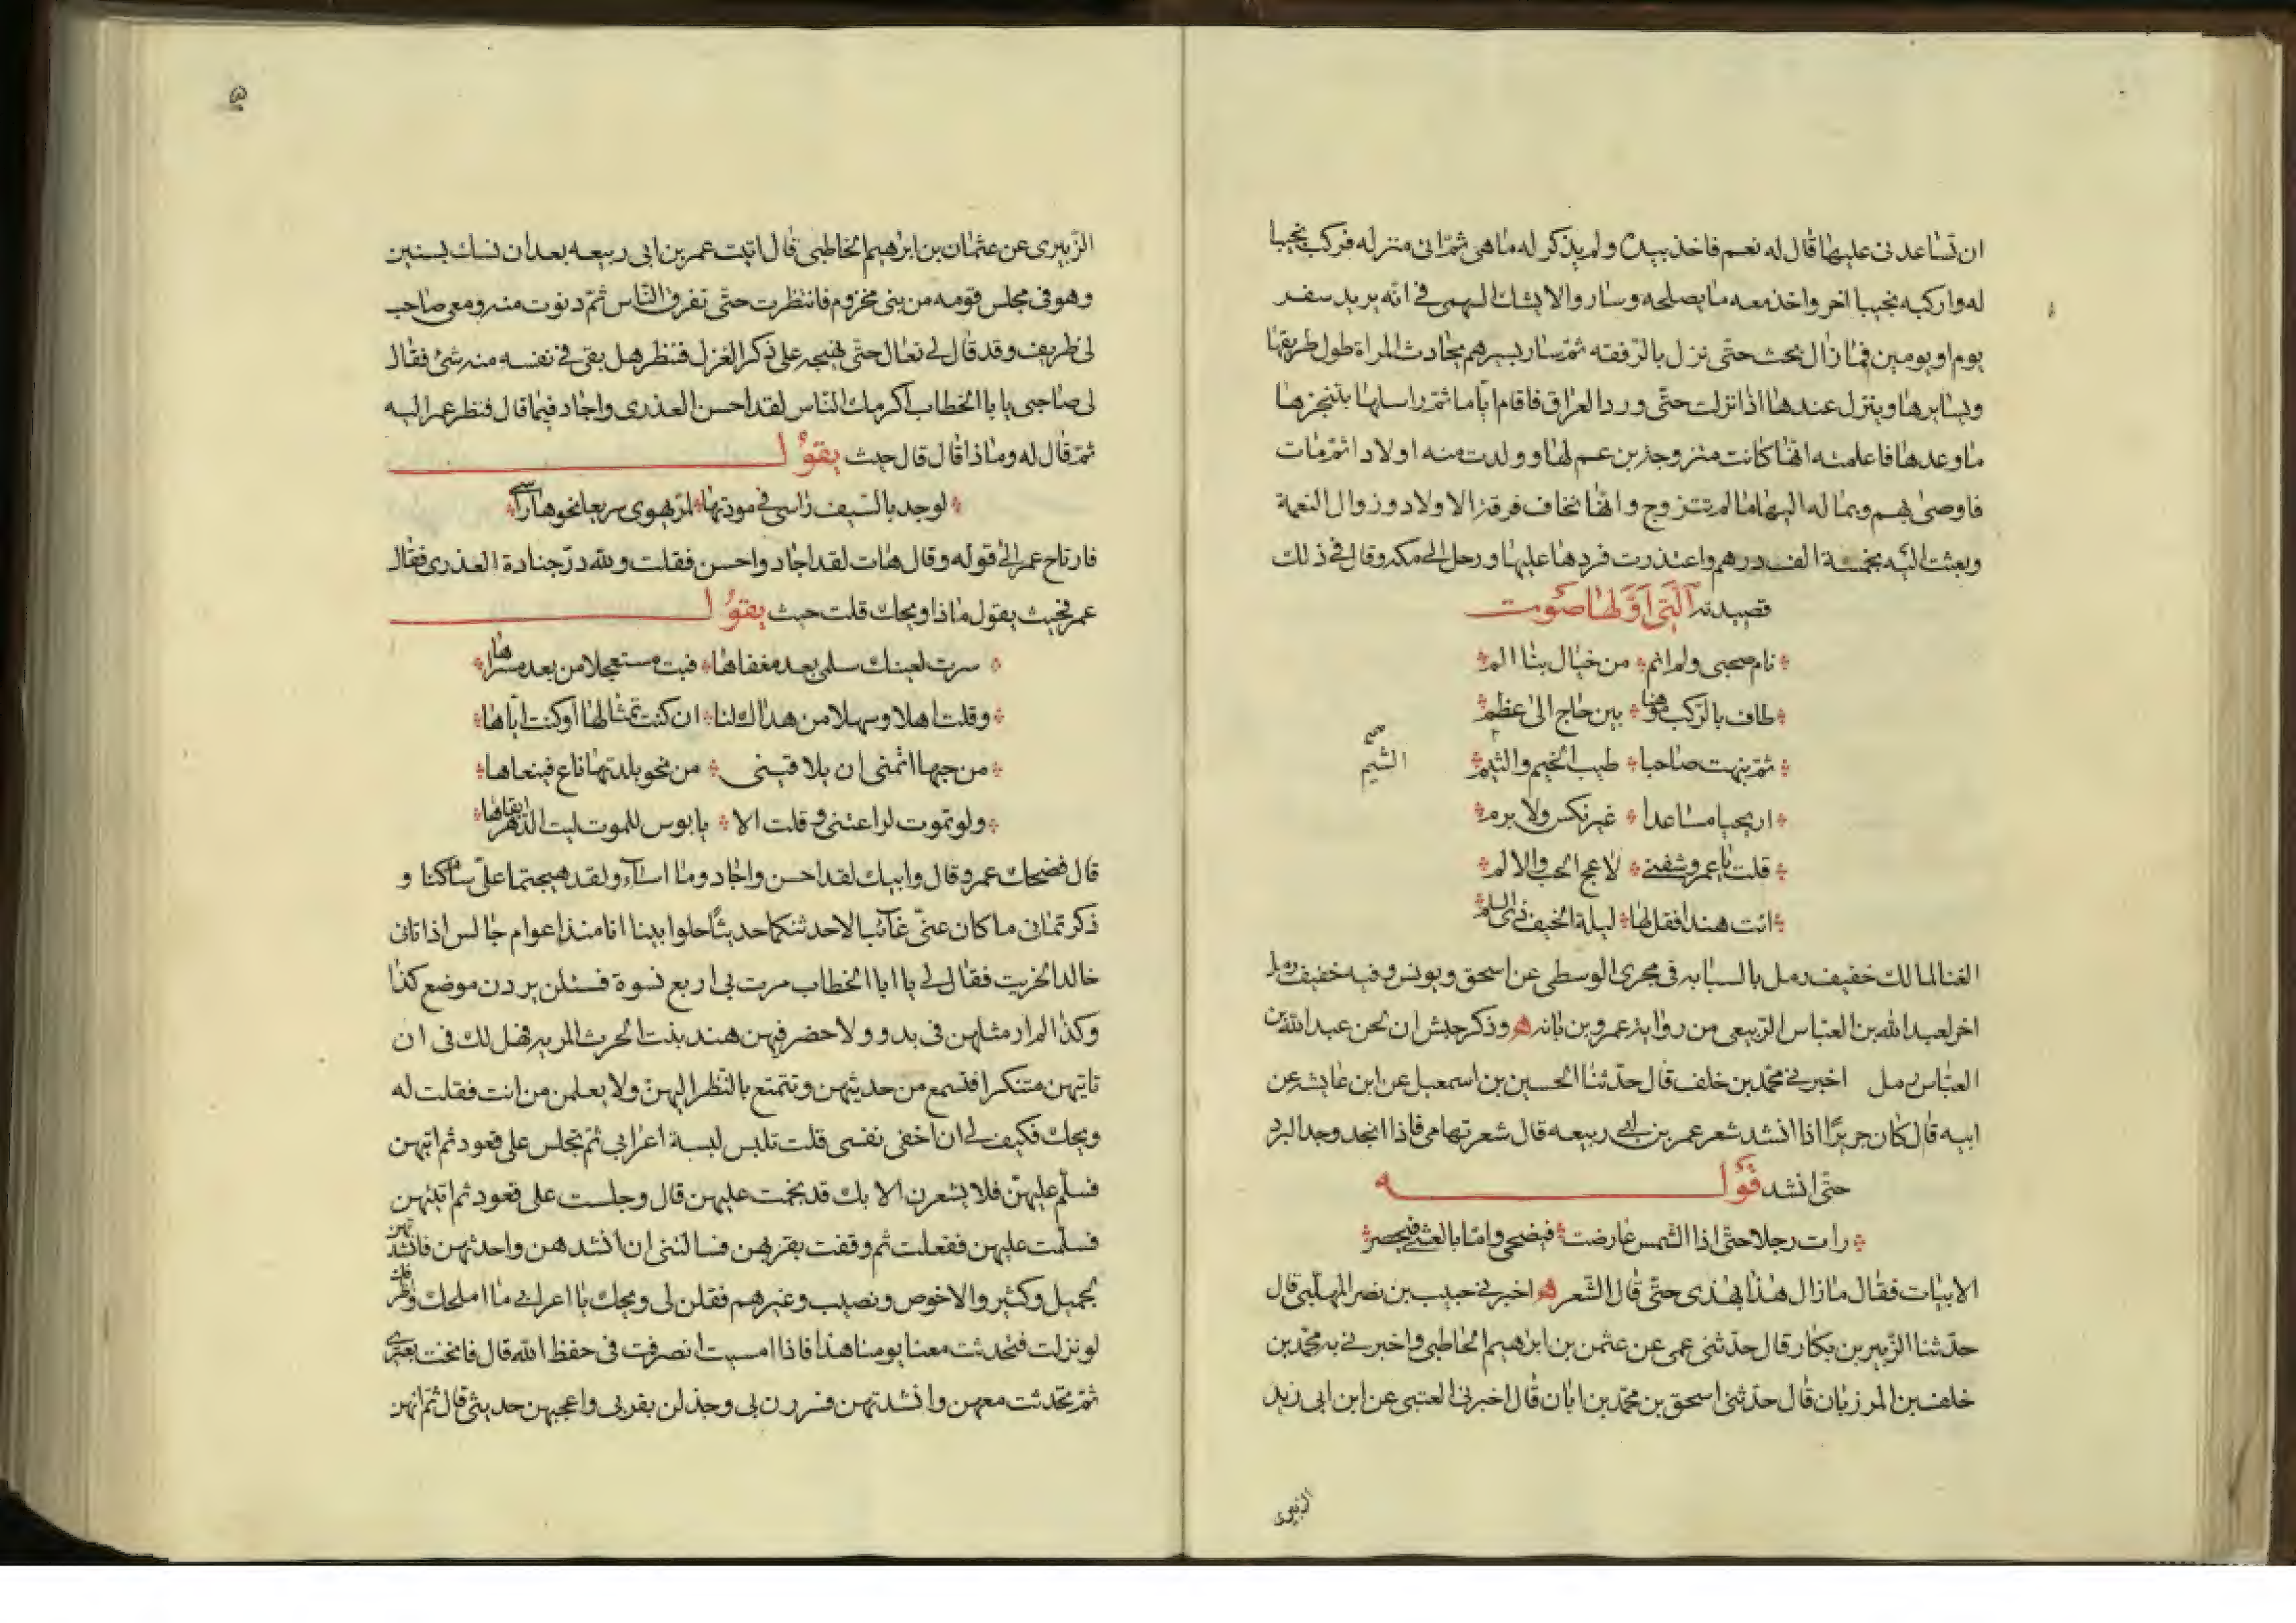 ان تساعدنى عليها قال له نعم فاخذ بيده ولم يذكر له ما هى ثم اتى منزله فركب نجيبا
له واركبه نجيبا اخر واخذ معه ما يصلحه وسار والا يشك السهمى فى انه يريد سفر
يوم او يومين فما زال يحث حتى نزل بالرفقه ثم سار بسيرهم يحادث المراة طول طريقها
ويسايرها وينزل عندها اذا نزلت حتى ورد العراق فاقام اياما ثم راسلها بتنجزها
ما وعدها فاعلمته انها كانت متزوجة بن عم لها وولدت منه اولادا ثم مات
فاوصى بهم وبماله اليها ما لم تتزوج وانها تخاف فرقة الاولاد وزوال النعمة
وبعثت اليه بخمسة الف درهم واعتذرت فردها عليها ورحل الى مكه وقال فى ذلك
قصيدته التى اولها صوت
نام صحبى ولم انم من خيال بنا الم
طاف بالركب موهنا بين خاج الى عظم
ثم نبهت صاحبا طيب الخيم والشيم
الشيم
اريحيا مساعدا غير نكس ولا برم
قلت يا عمرو شفنى لاعج الحب والالم
ائت هندا فقل لها ليلة الخيف ذى السلم
الغنا لمالك خفيف رمل بالسبابه فى مجرى الوسطى عن اسحق ويونس وفيه خفيف رمل
اخر لعبد الله بن العباس الربيعى من رواية عمرو بن بانه وذكر حبش ان لحن عبد الله بن
العباس رمل اخبرنى محمد بن خلف قال حدثنا الحسين بن اسمعيل عن ابن عايشه عن
ابيه قال كان جريرا اذا انشد شعر عمر بن ابى ربيعه قال شعر تهامى فاذا انجد وجد البرد
حتى انشد قوله
رات رجلا حتى اذا الشمس عارضت فيضحى واما بالعشى فيحصر
الابيات فقال ما زال هذا يهذى حتى قال الشعر اخبرنى حبيب بن نصر المهلبى قال
حدثنا الزبير بن بكار قال حدثنى عمى عن عثمن بن ابرهيم الخاطبى واخبرنى به محمد بن
خلف بن المرزبان قال حدثنى اسحق بن محمد بن ابان قال اخبرنى العتبى عن ابن ابى زيد
الزبيرى
۵
الزبيرى عن عثمان بن ابرهيم الخاطبى قال اتيت عمر بن ابى ربيعه بعد ان نسك بسنين
وهو فى مجلس قومه من بنى مخزوم فانتظرت حتى تفرق الناس ثم دنوت منه ومعى صاحب
لى ظريف وقد قال لى تعال حتى نهيجه على ذكر الغزل فننظر هل بقى فى نفسه منه شئ فقال
لى صاحبى يا با الخطاب اكرمك الناس لقد احسن العذرى واجاد فيما قال فنظر عمر اليه
ثم قال له وماذا قال قال حيث يقول
لو جد بالسيف راسى فى مودتها لمر يهوى سريعا نحوها راسى
فارتاح عمر الى قوله وقال هات لقد اجاد واحسن فقلت ولله در جنادة العذرى فقال
عمر فحيث يقول ماذا ويحك قلت حيث يقول
سرت لعينك سلمى بعد مغفاها فبت مستعجلا من بعد مسراها
وقلت اهلا وسهلا من هداك لنا ان كنت تمثالها او كنت اياها
من حبها اتمنى ان يلاقينى من نحو بلدتها ناع فينعاها
ولو تموت لراعتنى وقلت الا يا بوس للموت ليت الدهر ابقاها
قال فضحك عمر وقال وابيك لقد احسن واجاد وما اساء ولقد هيجتما على ساكنا و
ذكرتمانى ما كان عنى غائبا لاحدثنكما حديثا حلوا بينا انا منذ اعوام جالس اذ اتانى
خالد الخريت فقال لى يا ابا الخطاب مرت بى اربع نسوة قبيل يردن موضع كذا
وكذا لم ار مثلهن فى بدو ولا حضر فيهن هند بنت الحرث المريه فهل لك فى ان
تاتيهن متنكرا فتسمع من حديثهن وتتمتع بالنظر اليهن ولا يعلمن من انت فقلت له
ويحك فكيف لى ان اخفى نفسى قلت تلبس لبسة اعرابى ثم تجلس على قعود ثم ائتهن
فسلم عليهن فلا يشعرن الا بك قد نجمت عليهن قال وجلست على قعود ثم اتيتهن
فسلمت عليهن ففعلت ثم وقفت بقربهن فسالننى ان انشدهن واحدثهن فانشدتهن
لجميل وكثير والاخوص ونصيب وغيرهم فقلن لى ويحك يا اعرابى ما املحك واظرفك
لو نزلت فتحدثت معنا يومنا هذا فاذا امسيت انصرفت فى حفظ الله قال فانخت بعيرى
ثم تحدثت معهن وانشدتهن فسررن بى وجذلن بقربى واعجبهن حديثى قال ثم انهن